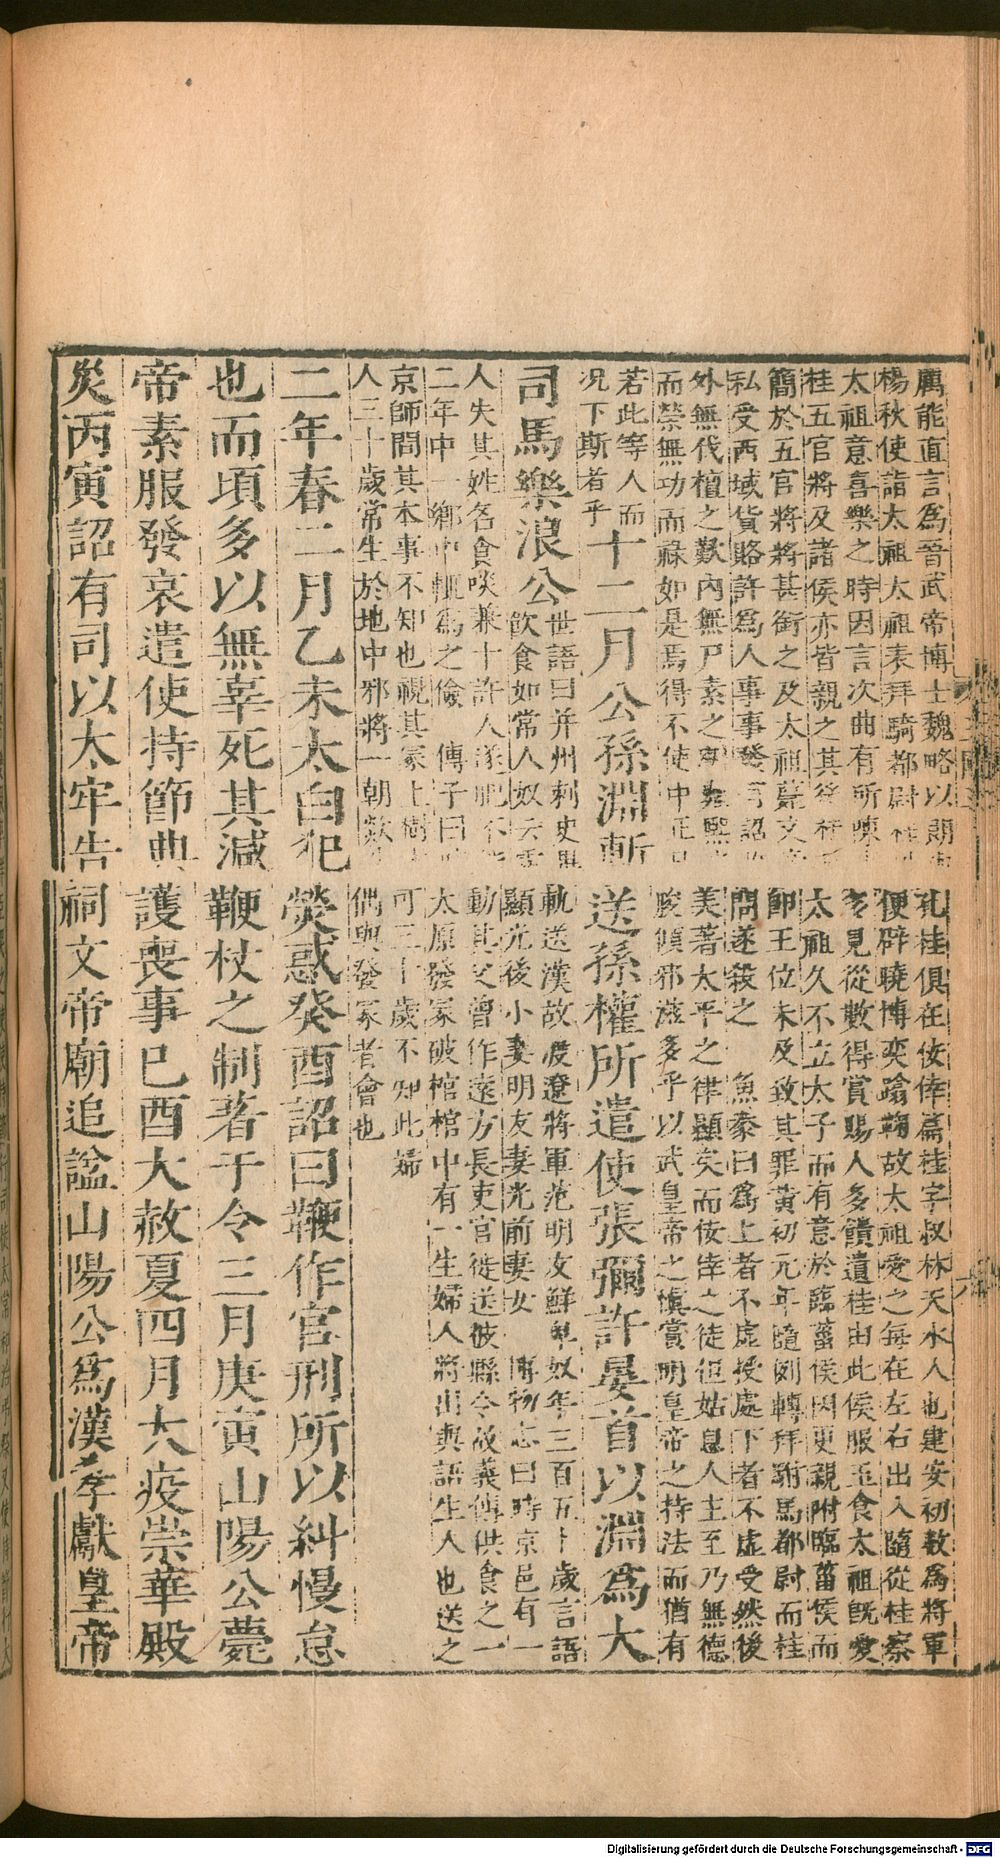 厲能直言爲晉武帝博士魏略以朗
孔桂俱在佞倖篇桂字叔林天水人也建安初數爲將軍
楊秋使詣太祖太祖表拜騎都尉桂
便辟曉博奕蹹鞠故太祖愛之每在左右出入隨從桂察
太祖意喜樂之時因言次曲有所陳
多見從數得賞賜人多饋遺桂由此侯服玉食太祖旣愛
桂五官將及諸侯亦皆親之其後
太祖久不立太子而有意於臨菑侯因更親附臨菑侯而
簡於五官將將甚銜之及太祖薨文
卽王位未及致其罪黃初元年隨例轉拜駙馬都尉而桂
私受西域貨賂許爲人事事發有詔
問遂殺之　魚豢曰爲上者不虛授處下者不虛受然後
外無伐檀之歎內無尸素之刺雍熙
美著太平之律顯矣而佞倖之徒但姑息人主至乃無德
而榮無功而祿如是焉得不使中正
朘傾邪滋多乎以武皇帝之愼賞明皇帝之持法而猶有
若此等人而
况下斯者乎
十二月公孫淵斬送孫權所遣使張彌許晏首以淵爲大
司馬樂浪公
世語曰幷州刺史
軌送漢故渡遼將軍范明友鮮卑奴年三百五十歲言語
飮食如常人奴云
顯光後小妻明友妻光前妻女　博物志曰時京邑有一
人失其姓名食啖兼十許人遂肥不
動其父曾作遠方長吏官徙送彼縣令故義傳供食之一
二年中一鄕中輒爲之儉　傅子曰
太原發冢破棺棺中有一生婦人將出與語生人也送之
京師問其本事不知也視其冢上樹
可三十歲不知此婦
人三十歲常生於地中邪將一朝欻
偶與發冢者會也
二年春二月乙未太白犯熒惑癸酉詔曰鞭作官刑所以糾慢怠
也而頃多以無辜死其減鞭杖之制著于令三月庚寅山陽公薨
帝素服發哀遣使持節典護喪事巳酉大赦夏四月大疫崇華殿
災丙寅詔有司以太牢告祠文帝廟追諡山陽公爲漢孝獻皇帝
Digitalisierung gefördert durch die Deutsche Forschungsgemeinschaft - DFG